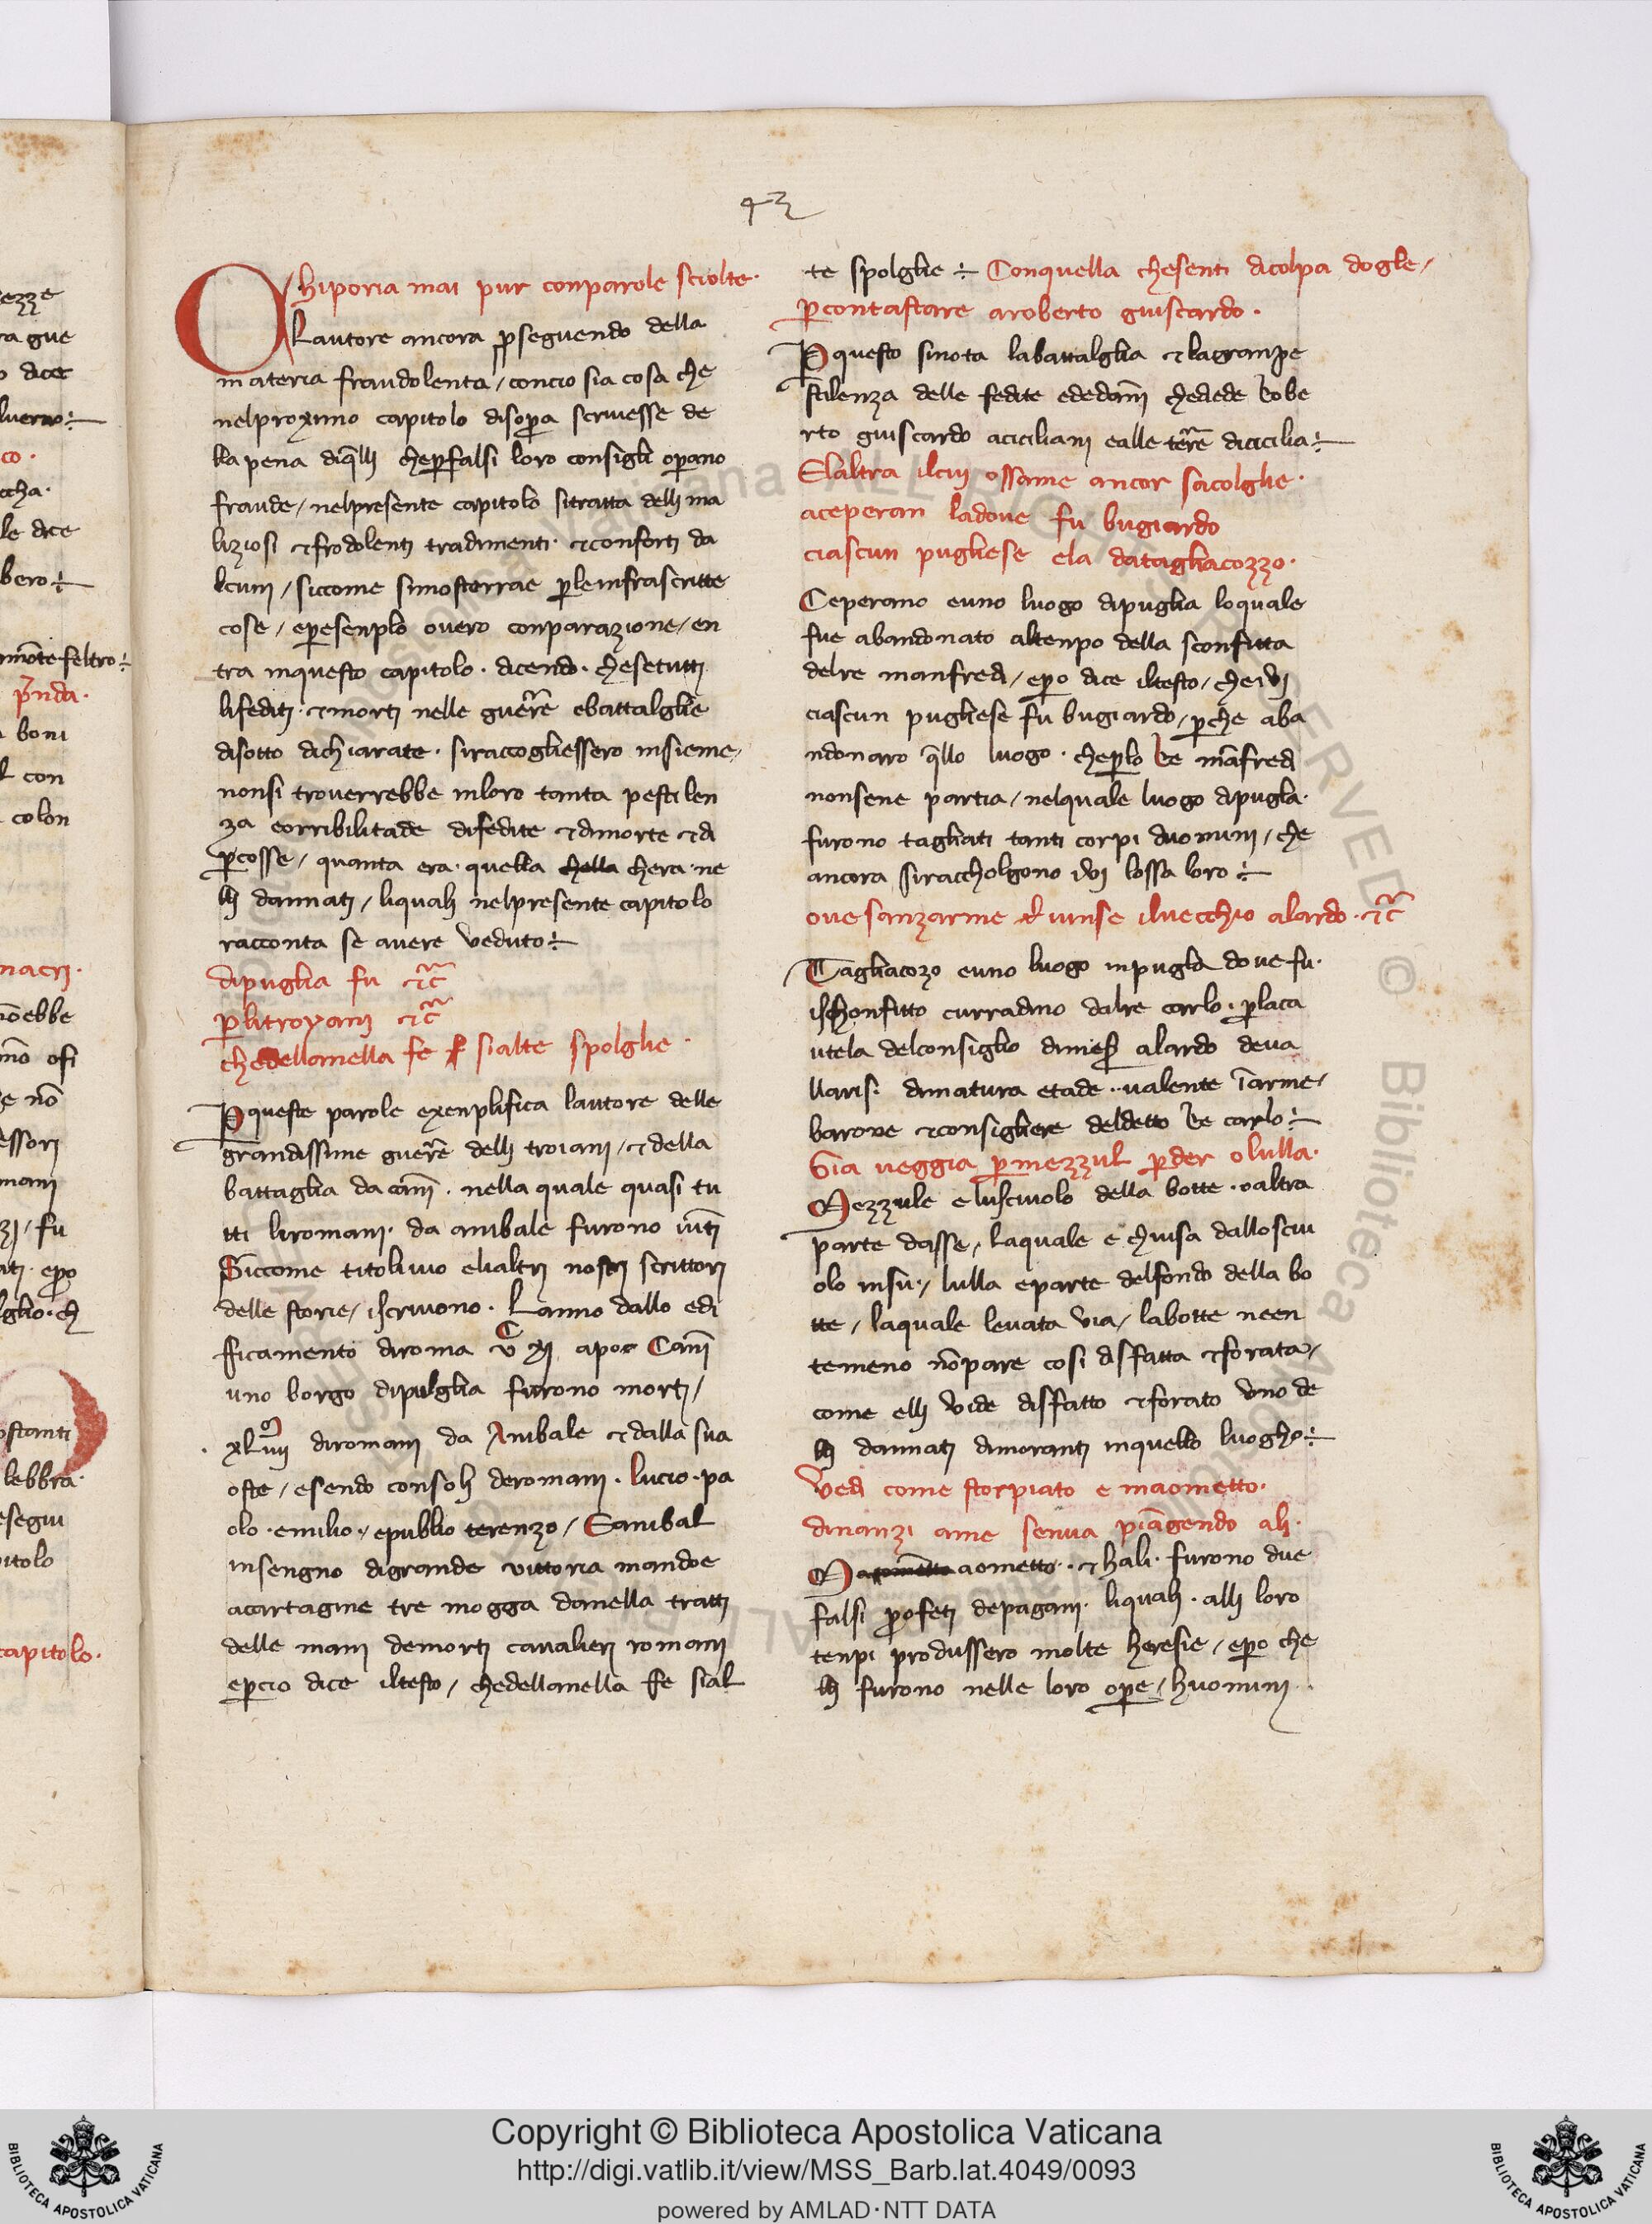 42
Chiporia mai pur conparole sciolte·
Lautore ancora pseguendo della
materia fraudolenta / concio sia cosa che
nelproximo capitolo disopa scrivesse de
lla pena diqlli chepfalsi loro consigli opano
fraude / nelpresente capitolo sitratta delli ma
liziosi &frodolenti tradimenti· &conforti da
lcuni / siccome simosterrae pleinfrascritte
cose / epesenplo overo conparazione / en
tra inquesto capitolo· dicendo· chesetutti
lifediti· &morti nelle guerre ebattalglie
disotto dichiarate· siraccogliessero insieme /
nonsi troverrebbe inloro tanta pestilen
za eorribilitade difedite &dimorte &di
pcosse / quanta era· quella chella chera·ne
lli dannati / liquali nelpresente capitolo
racconta se avere veduto÷
dipuglia fu &c
plitroyani &c
chedellanella fe f sialte spolglie·
Pqueste parole exenplifica lautore delle
grandissime guerre delli troiani / & della
battaglia da canni· nella quale quasi tu
tti liromani· da anibale furono vinti
Siccome titolivio elialtri nostri scrittori
delle storie / iscrivono· Lanno dallo edi
fficamento diroma v c xi apor Canni
uno borgo dipulglia furono morti /
· xliiii diromani da Anibale &dalla sua
oste / esendo consoli deromani· lucio·pa
olo·emilio· / epublio terenzo / Eanibal
insengno digrande vittoria mandoe
acartagine tre mogga danella tratti
delle mani demorti cavalieri romani
epcio dice iltesto / chedellanella fe sial
te spolglie÷ Conquella chesenti dicolpa dogle /
pcontastare aroberto guiscardo·
Pquesto sinota labattalglia &lagranpe
stilenza delle fedite ededanni chediede Robe
rto guiscardo aciciliani ealle terre dicicilia÷
Elaltra ilcui ossame ancor sacolglie·
aceperan ladove fu bugiardo
ciascun pugliese ela datagliacozzo·
Ceperano euno luogo dipuglia loquale
fue abandonato altenpo della sconfitta
delre manfredi / epo dice iltesto / cheivi
ciascun pugliese fu bugiardo / pche aba
ndonaro qllo luogo· cheplo Re mafredi
nonsene partia / nelquale luogo dipuglia·
furono tagliati tanti corpi duomini / che
ancora siraccholgono ivi lossa loro÷
ove sanzarme vinse ilvecchio alardo· &c
Tagliacozo euno luogo inpuglia dove fu·
ischonfitto curradino dalre carlo· placa
utela delconsiglio dimes alardo deva
llaris· dimatura etade··valente iarme /
barone &consigliere deldetto Re carlo÷
Gia veggia pmezzul pder olulla·
Mezzule eluscivolo della botte·oaltra
parte dasse / laquale e chiusa dalloscivi
olo insu· / lulla eparte delfondo della bo
tte / laquale levata via / labotte neen
temeno nopare cosi disfatta &forata /
come elli vide disfatto &forato uno de
lli dannati dimoranti inquello luogho÷
Vedi come storpiato e maometto·
dinanzi ame senva piagendo ali·
Ma aometto·· & hali· furono due
falsi profeti depagani· liquali· alli loro
tenpi produssero molte heresie / epo che
lli furono nelle loro ope / huomini